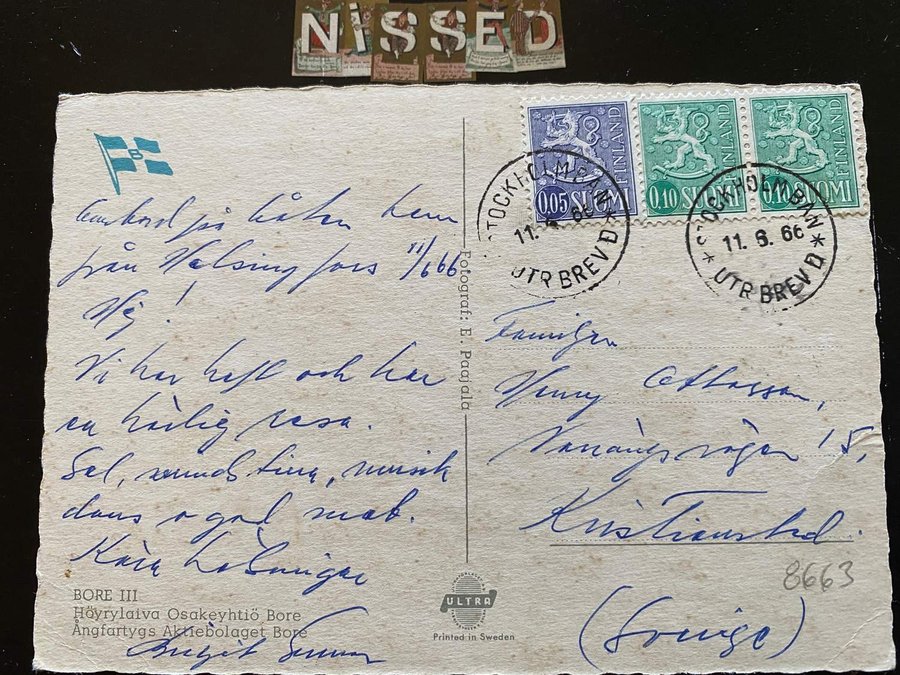 NiSSED
B
FINLAND
0,05 SUOMI
FINLAND
0,10 SUOMI
FINLAND
0,10 SUOMI
STOCKHOLM BAN
11. 66
UTR BREV D
STOCKHOLM BAN
11. 6. 66
UTR BREV D
Ombord på båten hem
från Helsingfors 11/6 66
Hej!
Vi har haft och har
en härlig resa.
Sol, musik
dans o god mat.
Kära hälsningar
Birgit
BORE III
Höyrylaiva Osakeyhtiö Bore
Ångfartygs Aktiebolaget Bore
Fotograf: E. Paajala
ULTRA
Printed in Sweden
Familjen
Vanängsvägen 15,
Kristianstad.
(Sverige)
8663